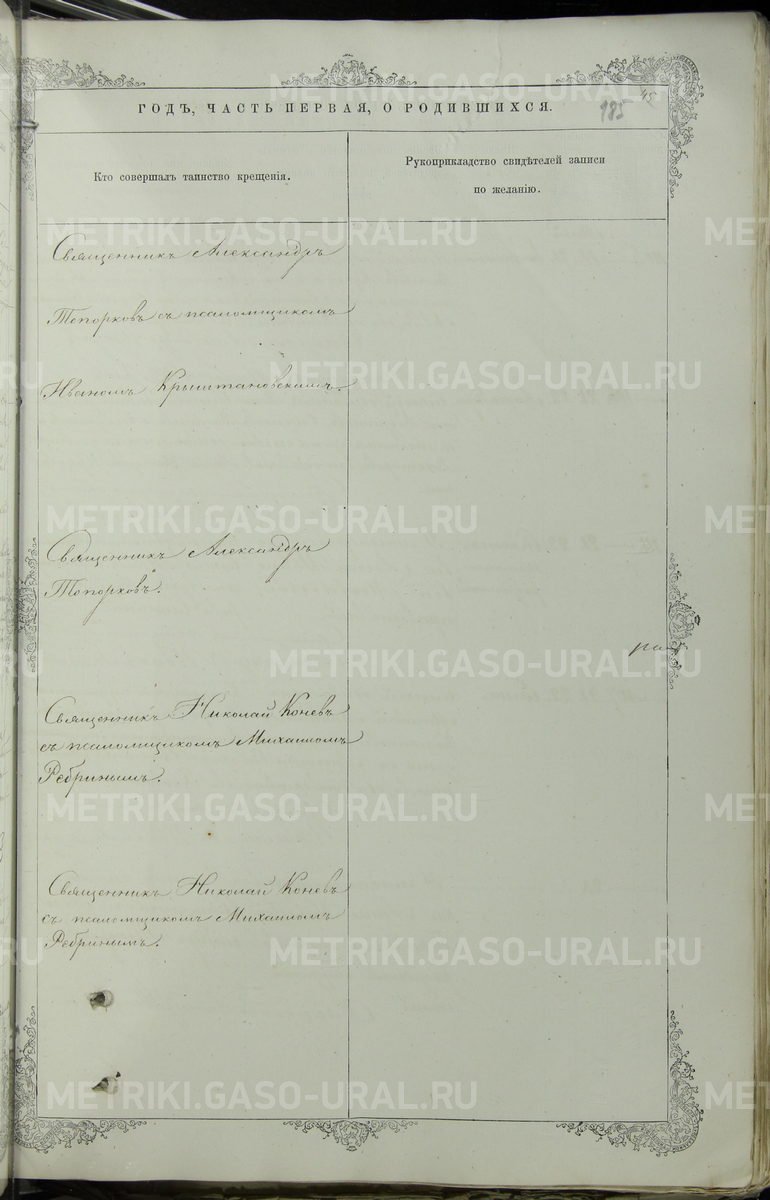 ГОДЪ, ЧАСТЬ ПЕРВАЯ, О РОДИВШИХСЯ.
185
45
Кто совершалъ таинство крещенія.
Рукоприкладство свидѣтелей записи
по желанію.
Священникъ Александръ
Топорковъ съ псаломщикомъ
Иваномъ Крыштановскимъ.
Священникъ Александръ
Топорковъ.
ра
Священникъ Николай Коневъ
съ псаломщикомъ Михаиломъ
Ребринымъ.
Священникъ Николай Коневъ
съ псаломщикомъ Михаиломъ
Ребринымъ.
METRIKI.GASO-URAL.RU